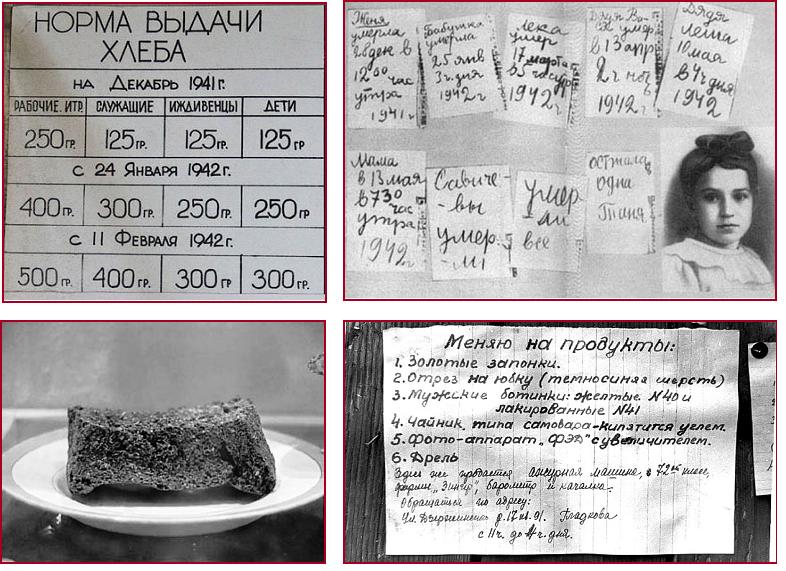 НОРМА ВЫДАЧИ
ХЛЕБА
НА ДЕКАБРЬ 1941г.
РАБОЧИЕ. ИТР. СЛУЖАЩИЕ ИЖДИВЕНЦЫ ДЕТИ
250 гр. 125 гр. 125 гр. 125 гр
С 24 ЯНВАРЯ 1942г.
400 гр. 300 гр. 250 гр. 250 гр
С 11 ФЕВРАЛЯ 1942г.
500 гр. 400 гр. 300 гр 300 гр.
Женя
умерла
28 дек в
12 00 час
утра
1941 г
Бабушка
умерла
25 янв
3 ч. дня
1942 г
Лека
умер
17 марта
в 5 час утр
1942 г
Дядя Ва-
ся умер
в 13 апр
2 ч ноч
1942 г
Дядя
Леша
10 мая
в 4 ч дня
1942
Мама
в 13 мая
в 7 30
час
утра
1942 г
Савиче-
-вы
умер-
-ли
умер
-ли
все
осталась
одна
Таня
Меняю на продукты:
1. Золотые запонки.
2. Отрез на юбку (темносиняя шерсть)
3. Мужские ботинки: желтые №40 и
лакированные №41
4. Чайник типа самовара-кипятится углем.
5. Фото-аппарат „ФЭД“ с увеличителем.
6. Дрель
Здесь же продается ажурная машина,
фирмы „Зингер“, барометр и качалка.
Обращаться по адресу:
Ул. Дзержинского д. 17 кв. 91.
с 11 ч. до 4 ч. дня.